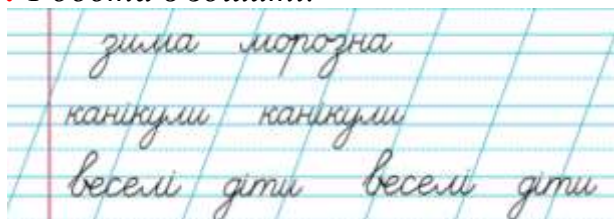 зима морозна
канікули канікули
веселі діти веселі діти